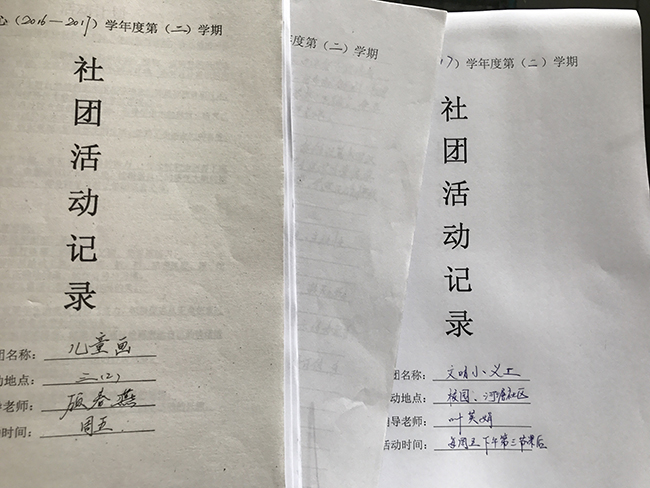 (2016—2017)学年度第（二）学期
社团活动记录
团名称：儿童画
动地点：三(2)
导老师：春燕
时间：周五
年度第（二）学期
7)学年度第（二）学期
社团活动记录
团名称：文明小义工
动地点：校园、河唇社区
导老师：叶英娟
活动时间：每周五下午第三节课后